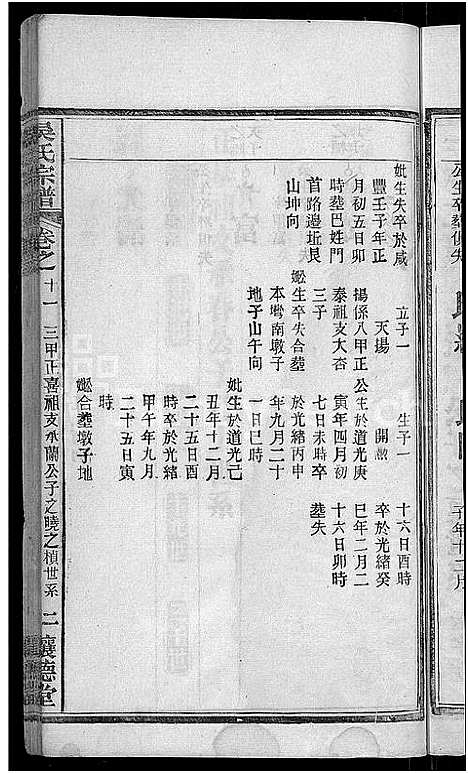 公生卒塟俱失
子年十二月
妣生失卒於咸
豐壬子年正
月初五日卯
時塟巴姓門
首路邊坵艮
山坤向
立子一
天塲
揚係八甲正
泰祖支大杏
三子
生卒失合塟
本塆南墩子
地子山午向
生子一
開
公生於道光庚
寅年四月初
七日未時卒
於光緒丙申
年九月二十
一日巳時
妣生於道光己
丑年十二月
二十五日酉
時卒於光緒
甲午年九月
二十五日寅
時
合塟墩子地
十六日酉時
卒於光緒癸
巳年二月二
十六日卯時
塟失
吳氏宗譜 卷之十一 三甲正喜祖支永蘭公子之曉之楨世系 二 讓德堂